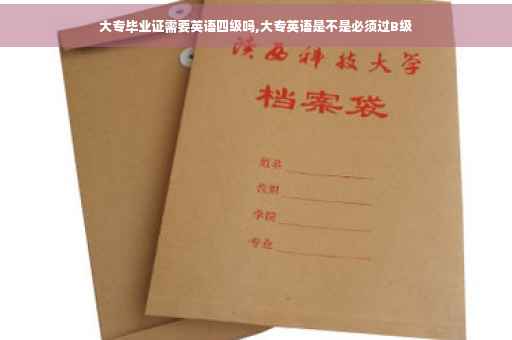 大专毕业证需要英语四级吗,大专英语是不是必须过B级
陕西科技大学
档案袋
姓名
学院
专业